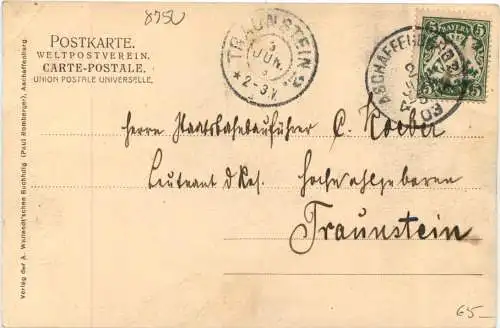 8750
POSTKARTE.
WELTPOSTVEREIN.
CARTE-POSTALE.
UNION POSTALE UNIVERSELLE.
TRAUNSTEIN
3
JUN.
2-3.N.
ASCHAFFENBURG
BAYERN
5 5
Herrn Staatsbahnbauführer C. Koeber
Leutnant d Res. Hochwohlgeboren
Traunstein
Verlag der A. Wailandt'schen Buchhdlg (Paul Romberger), Aschaffenburg.
65-